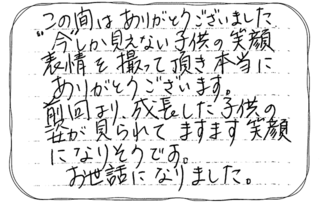 この間はありがとうございました
"今"しか見えない子供の笑顔
表情を撮って頂き本当に
ありがとうございます。
前回より、成長した子供の
姿が見られてますます笑顔
になりそうです。
お世話になりました。